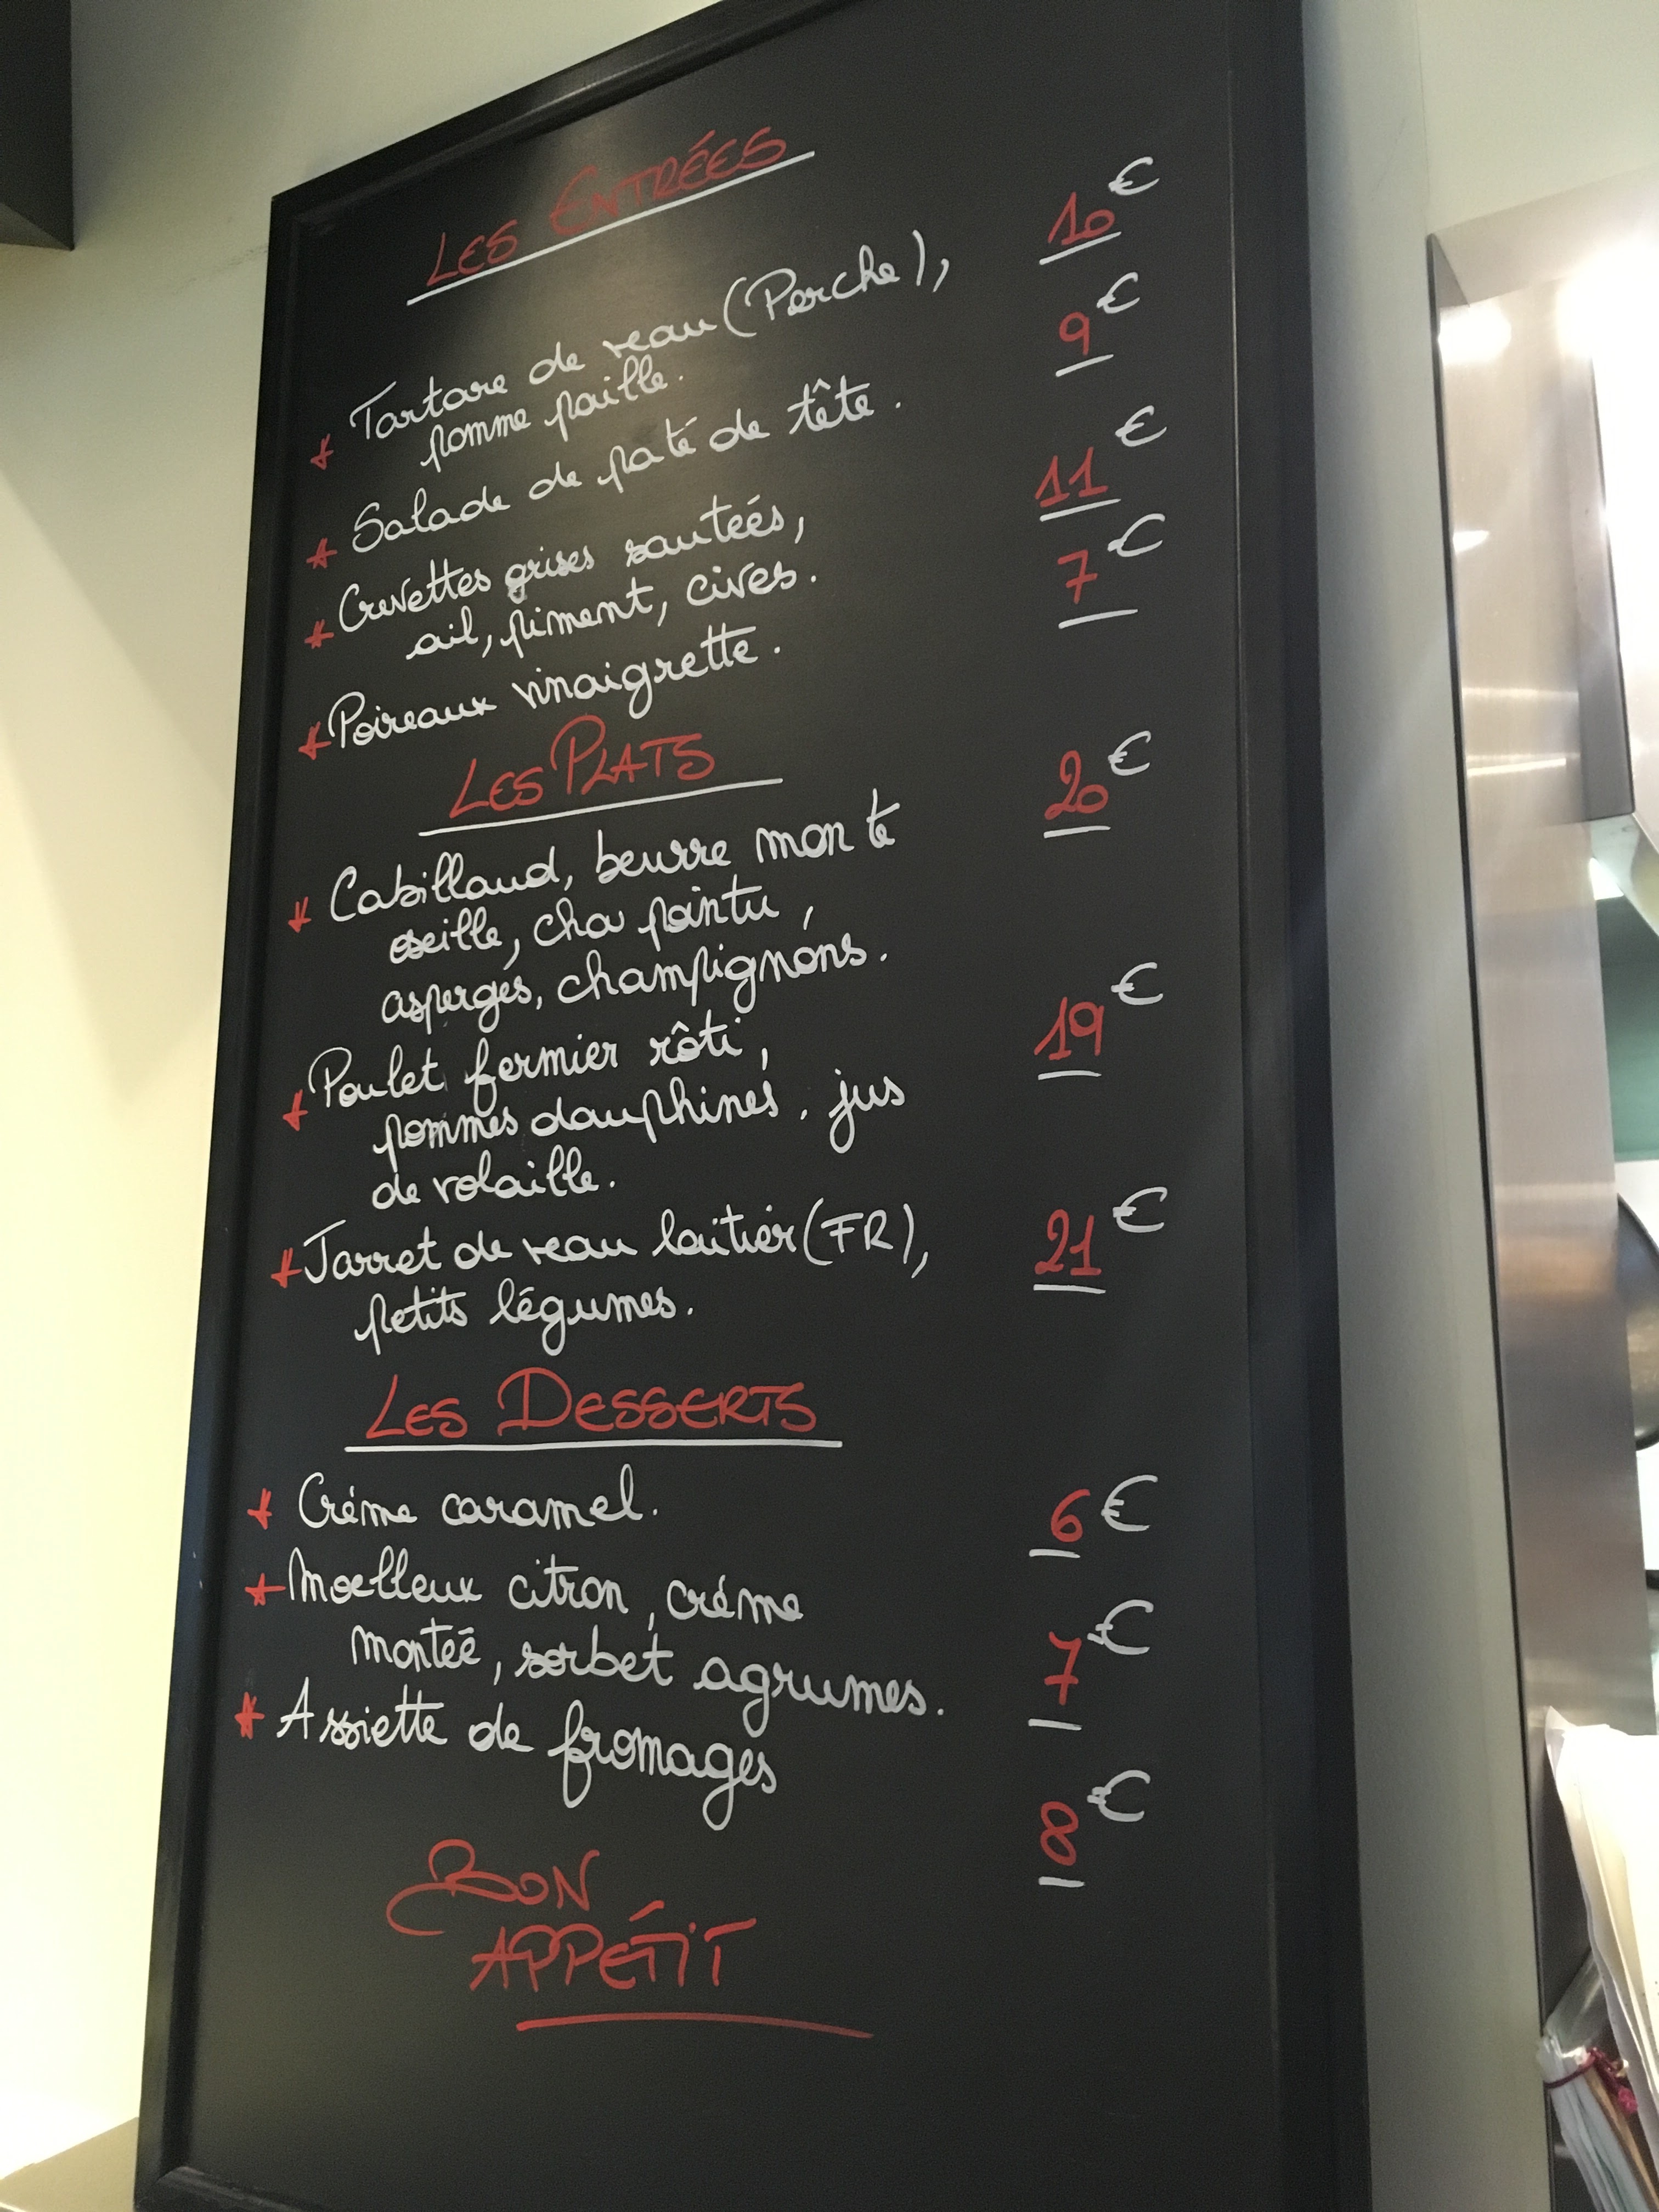 LES ENTRÉES
Tartare de veau (Perche), 10€
pomme paille.
Salade de paté de tête. 9€
Crevettes grises sauteés, 11€
ail, piment, cives.
Poireaux vinaigrette. 7€
LES PLATS
Cabillaud, beurre monte 20€
oseille, chou pointu,
asperges, champignons.
Poulet fermier rôti, 19€
pommes dauphines, jus
de volaille.
Jarret de veau laitier (FR), 21€
petits légumes.
LES DESSERTS
Créme caramel. 6€
Moelleux citron, créme 7€
monteé, sorbet agrumes.
Assiette de fromages 8€
BON
APPÉTIT